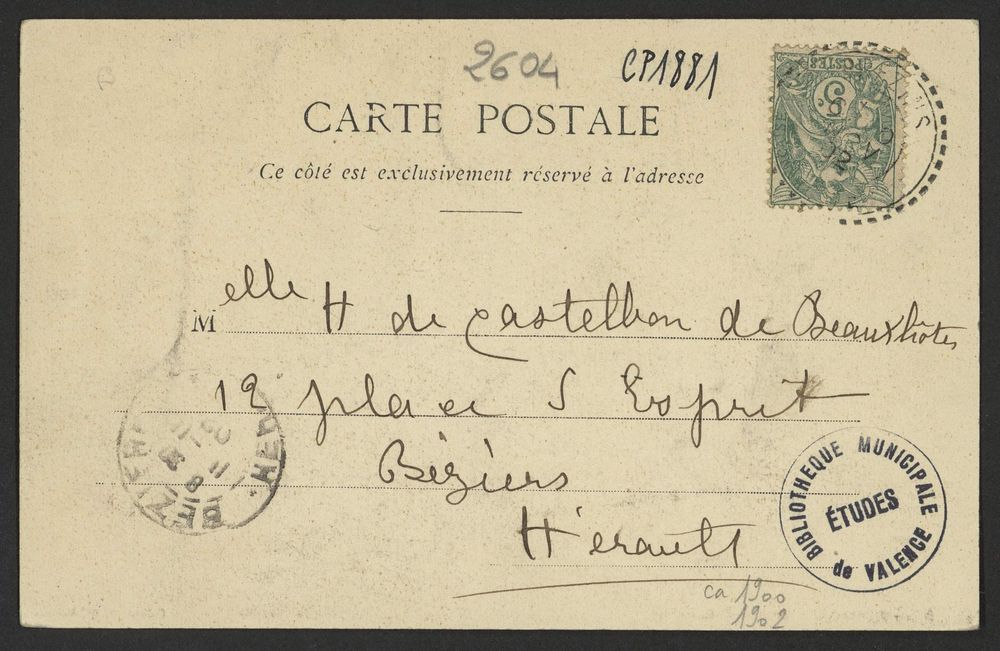 2604
CP1881
POSTES
5
CARTE POSTALE
Ce côté est exclusivement réservé à l'adresse
Melle H de Castelbon de Beauxhôtes
12 place S Esprit
Béziers
Hérault
BIBLIOTHEQUE MUNICIPALE
ÉTUDES
de VALENCE
ca 1900
1902